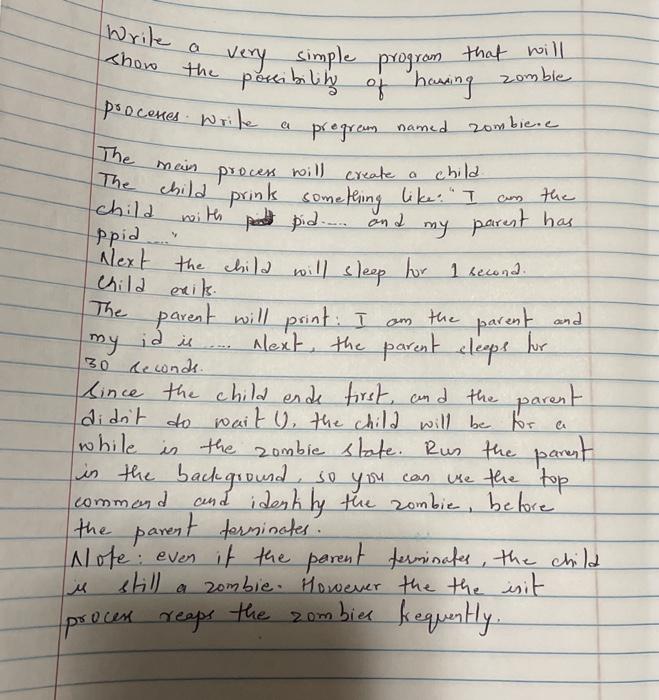 Write a very simple program that will
show the possibility of having zombie
processes. Write a program named zombie.c
The main process will create a child.
The child prints something like: "I am the
child with pid.... and my parent has
ppid ...."
Next the child will sleep for 1 second.
Child exits.
The parent will print: I am the parent and
my id is .... Next, the parent sleeps for
30 seconds.
Since the child ends first, and the parent
didn't do wait(), the child will be for a
while in the zombie state. Run the parent
in the background, so you can use the top
command and identify the zombie, before
the parent terminates.
Note: even if the parent terminates, the child
is still a zombie. However the the init
process reaps the zombies frequently.